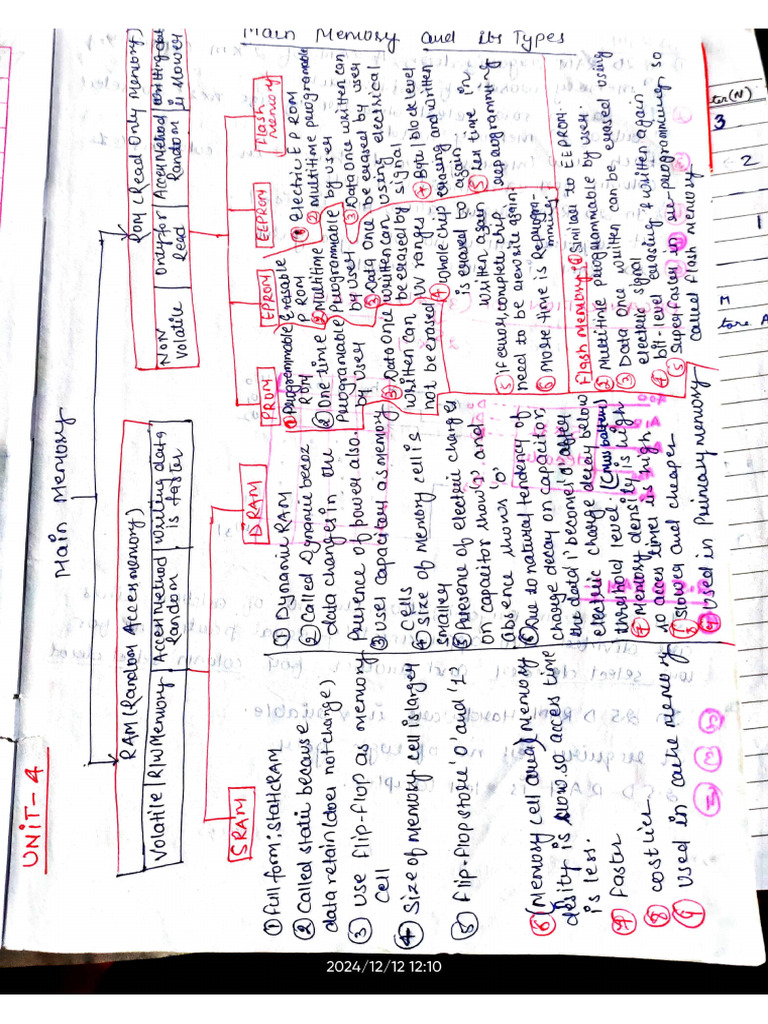 UNIT-4
Main Memory and its Types
Main Memory
RAM (Random Access memory)
Volatile
R/W Memory
Access Method Random
writing data is faster
ROM (Read-Only Memory)
NON Volatile
Only for Read
Access Method Random
writing data is slower
SRAM
① full form: static RAM
② Called static because
data retain (does not change)
③ use flip-flop as memory
cell
④ Size of memory cell is larger
⑤ flip-flop store '0' and '1'
⑥ (Memory cell area) Memory
desity is slow. so access time
is less.
⑦ faster
⑧ costlier
⑨ Used in cache memory
DRAM
① Dynamic RAM
② Called Dynamic becoz
data changes in the
presence of power also.
③ uses capacitors as memory
cells
④ Size of memory cell is
smaller
⑤ Presence of electric charges
on capacitor show '1' and
absence shows '0'
⑥ Due to natural tendency of
charge decay on capacitor
the data '1' become '0' after
electric charge decay below
threshold level
⑦ Memory density is high
so access time is high
⑧ slower and cheaper
⑨ Used in Primary memory
PROM
① Programmable
ROM
② One-time
Programable
by user
③ Data once
written can
not be erased
EPROM
① Erasable
PROM
② Multitime
Programmable
by user
③ Data once
written can
be erased by
UV range
④ whole chip
is erased to
written again
⑤ if error, complete chip
need to be rewrite again
⑥ more time is Reprogra-
mming
EEPROM
① Electric EPROM
② Multitime programmable
by user
③ Data once written can
once be erased by user
using electrical
signal
④ Byte/block level
erasing and written
again
⑤ Less time in
reprogramming
Flash Memory
Flash memory: ① Similar to EEPROM.
② Multitime programmable by user.
③ Data once written can be erased using
electric signal
④ bit-level erasing & written again
⑤ Super faster in re-programming, so
called flash memory
3
2
2024/12/12 12:10